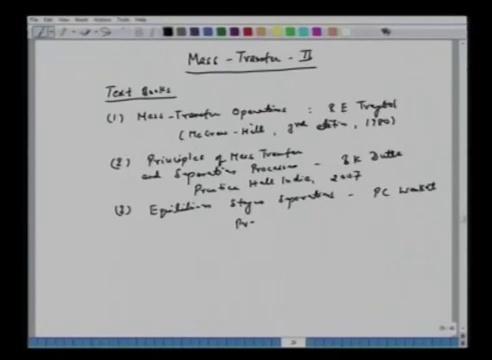 Mass - Transfer - II
Text Books
(1) Mass - Transfer Operations : R E Treybal
(McGraw-Hill, 3rd edition, 1980)
(2) Principles of Mass Transfer
and Separation Processes - B K Dutta
Prentice Hall India, 2007
(3) Equilibrium Stages Separations - PC Wankat
Pr